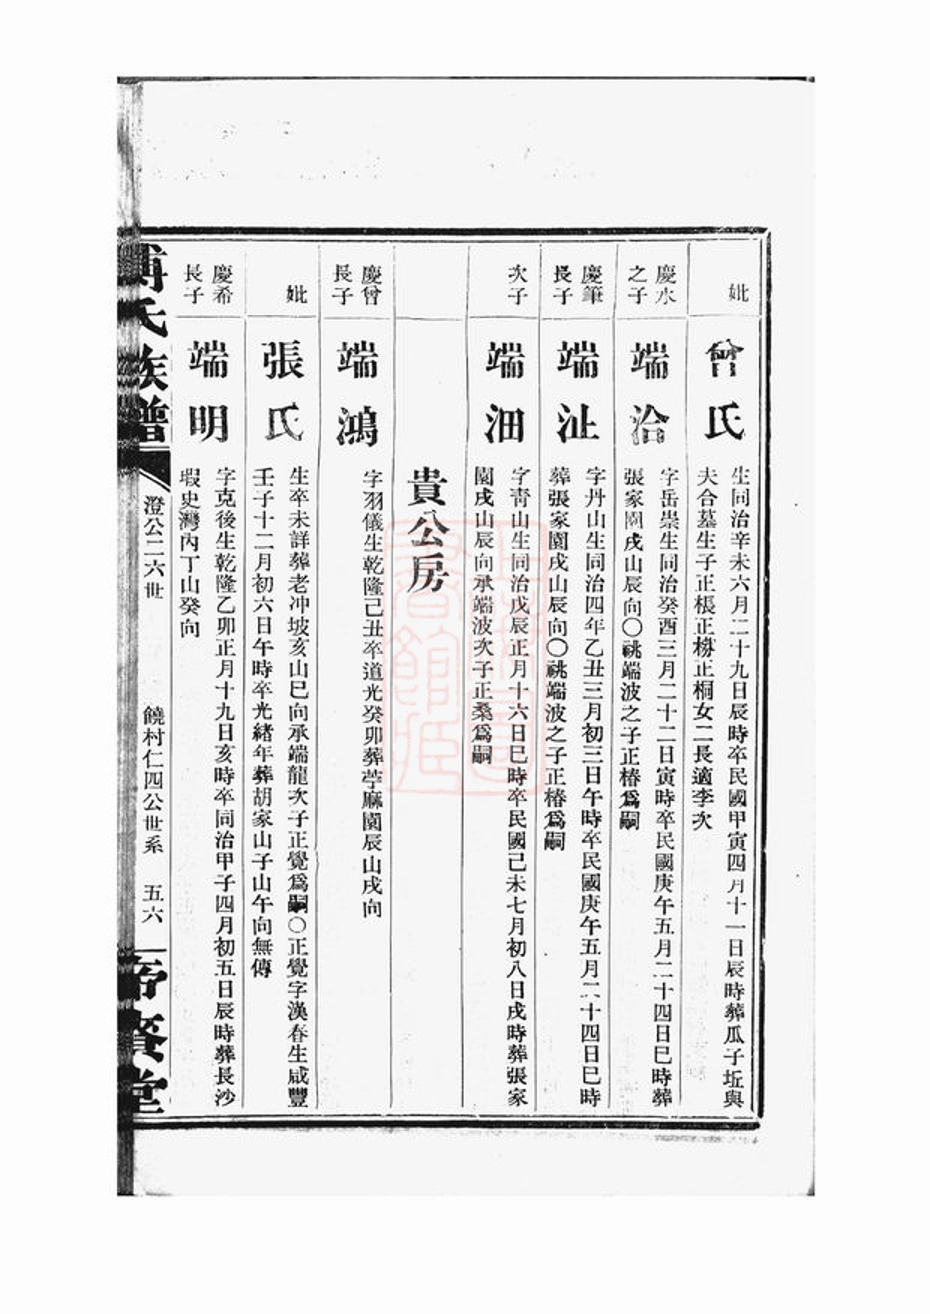 妣
曾氏
生同治辛未六月二十九日辰時卒民國甲寅四月十一日辰時葬瓜子坵與
夫合墓生子正棖正枬正桐女二長適李次
慶水
之子
端洽
字岳崇生同治癸酉三月二十二日寅時卒民國庚午五月二十四日巳時葬
張家園戌山辰向〇祧端波之子正椿爲嗣
慶筆
長子
端沚
字丹山生同治四年乙丑三月初三日午時卒民國庚午五月二十四日巳時
葬張家園戌山辰向〇祧端波之子正椿爲嗣
次子
端沺
字靑山生同治戊辰正月十六日巳時卒民國己未七月初八日戌時葬張家
園戌山辰向承端波次子正桑爲嗣
貴公房
慶曾
長子
端鴻
字羽儀生乾隆己丑卒道光癸卯葬苧麻園辰山戌向
妣
張氏
生卒未詳葬老冲坡亥山巳向承端龍次子正覺爲嗣〇正覺字漢春生咸豐
壬子十二月初六日午時卒光緒年葬胡家山子山午向無傳
慶希
長子
端明
字克後生乾隆乙卯正月十九日亥時卒同治甲子四月初五日辰時葬長沙
瑕史灣內丁山癸向
傅氏族譜
澄公二六世
饒村仁四公世系
五六
帝賚堂